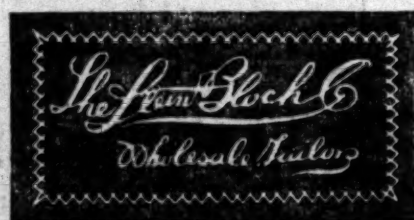 The Stein Bloch Co
Wholesale Tailors